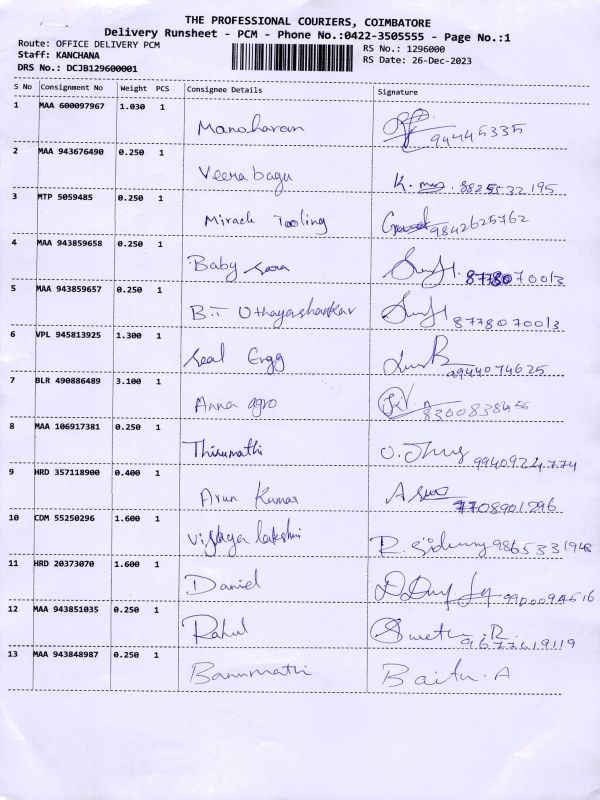 THE PROFESSIONAL COURIERS, COIMBATORE
Delivery Runsheet - PCM - Phone No.:0422-3505555 - Page No.:1
Route: OFFICE DELIVERY PCM
RS No.: 1296000
Staff: KANCHANA
RS Date: 26-Dec-2023
DRS No.: DCJB129600001
S No Consignment No Weight PCS Consignee Details Signature
1 MAA 600097967 1.030 1
Manoharan 94445335
2 MAA 943676490 0.250 1
Veerabagu K.
3 MTP 5059485 0.250 1
Miracle Tooling 9842625762
4 MAA 943859658 0.250 1
Baby 8778070013
5 MAA 943859657 0.250 1
B.T Uthayashankar 8778070013
6 VPL 945813925 1.300 1
Seal Engg 9944074625
7 BLR 490886489 3.100 1
Anna agro 8300838455
8 MAA 106917381 0.250 1
Thirumathi 9940924774
9 HRD 357118900 0.400 1
Arun Kumar 7708901296
10 CDM 55250296 1.600 1
Vijaya lakshmi R. 9865331948
11 HRD 20373070 1.600 1
Daniel
12 MAA 943851035 0.250 1
Rahul 9677619119
13 MAA 943848987 0.250 1
Banumathi